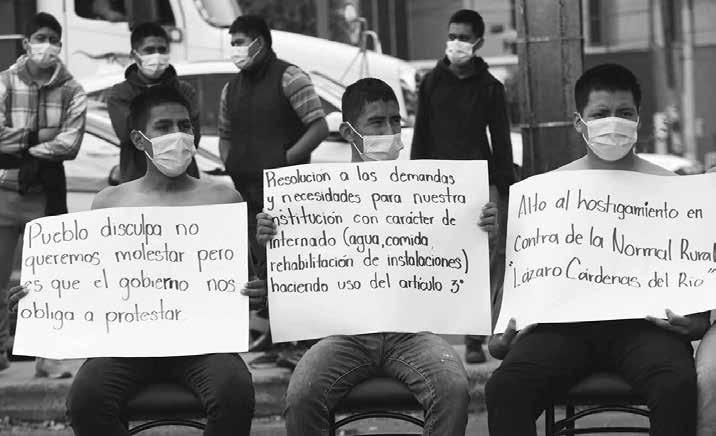 Pueblo disculpa no
queremos molestar pero
es que el gobierno nos
obliga a protestar.
Resolución a las demandas
y necesidades para nuestra
institución con carácter de
internado (agua, comida,
rehabilitación de instalaciones)
haciendo uso del artículo 3°
Alto al hostigamiento en
Contra de la Normal Rural
"Lázaro Cárdenas del Río"